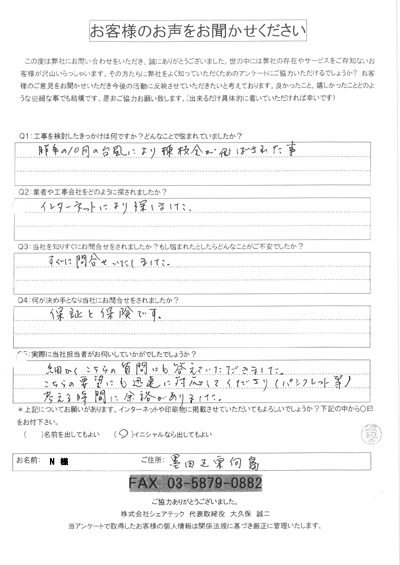 お客様のお声をお聞かせください
この度は弊社にお問い合わせをいただき、誠にありがとうございました。世の中には弊社の存在やサービスをご存知ないお
客様が沢山いらっしゃいます。その方たちに弊社をよく知っていただくためのアンケートにご協力いただけるでしょうか?お客
様のご意見をお聞かせいただき今後の活動に反映させていただきたいと考えております。良かったこと、嬉しかったことどのよ
うな些細な事でも結構です。是非ご協力お願い致します。(出来るだけ具体的に書いていただければ幸いです)
Q1:工事を検討したきっかけは何ですか?どんなことで悩まれていましたか?
昨年の10月の台風により棟板金が飛ばされた事
Q2:業者や工事会社をどのように探されましたか?
インターネットにより探しました。
Q3:当社を知りすぐにお問合せをされましたか?もし悩まれたとしたらどんなことがご不安でしたか?
すぐに問合せいたしました。
Q4:何が決め手となり当社にお問合せをされましたか?
保証と保険です。
Q5:実際に当社担当者がお伺いしていかがでしたでしょうか?
細かくこちらの質問にも答えていただきました。
こちらの要望にも迅速に対応してくださり(パンフレット等)
考える時間に余裕がありました。
*上記についてお願いがあります。インターネットや印刷物に掲載させていただいてもよろしいでしょうか?下記の中から〇印
をお付下さい。
( )名前を出してもよい (〇)イニシャルなら出してもよい
お名前: N 様 ご住所: 墨田区東向島
FAX 03-5879-0882
ご協力ありがとうございました。
株式会社シェアテック 代表取締役 大久保 誠二
当アンケートで取得したお客様の個人情報は関係法規に基づき厳正に管理いたします。